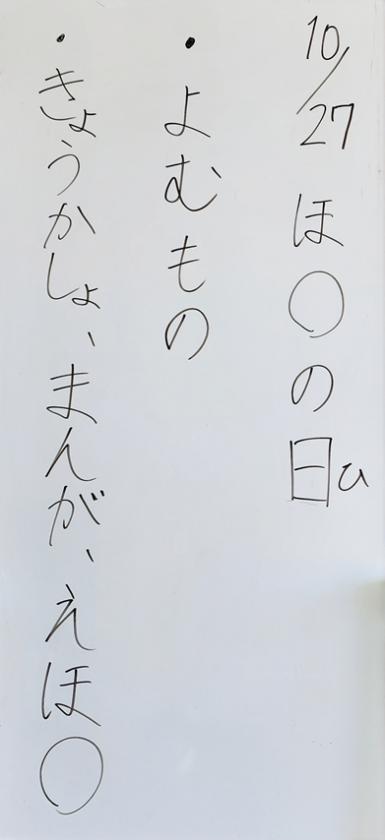 10/27 ほ〇の日ひ
・よむもの
・きょうかしょ、まんが、えほ〇